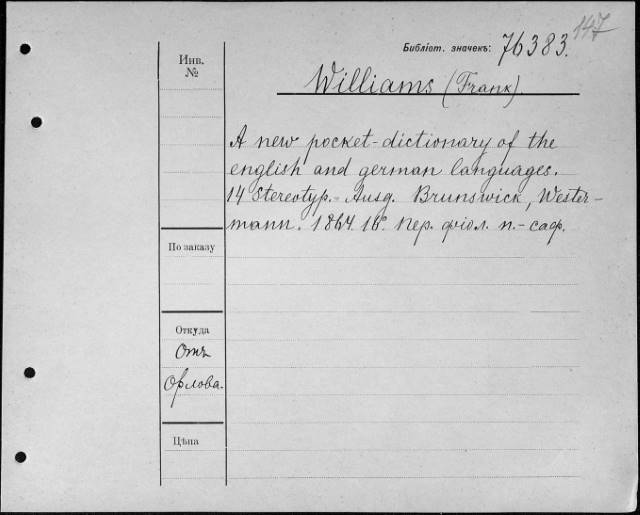 147
Библіот. значекъ: 76383.
Инв.
№
Williams (Frank).
A new pocket-dictionary of the
english and german languages.
14 Stereotyp.-Ausg. Brunswick, Wester-
mann. 1864. 16°. Пер. фіол. п.-саф.
По заказу
Откуда
Отъ
Орлова.
Цѣна